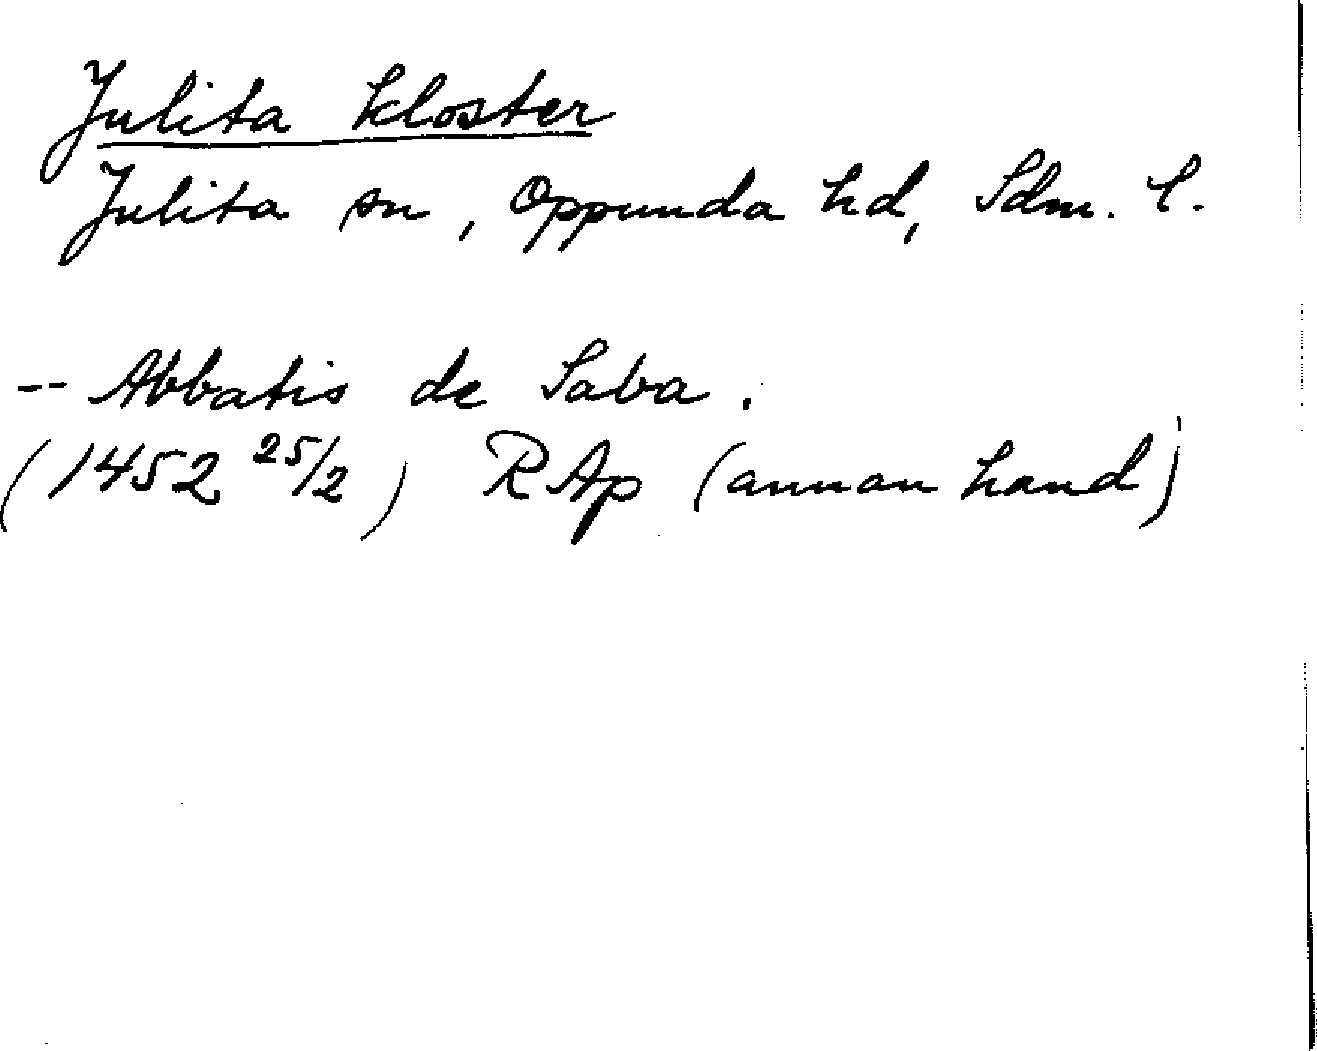 Julita kloster
Julita sn, Oppunda hd, Sdm. l.
-- Abbatis de Saba.
(1452 25/2) RAp (annan hand)